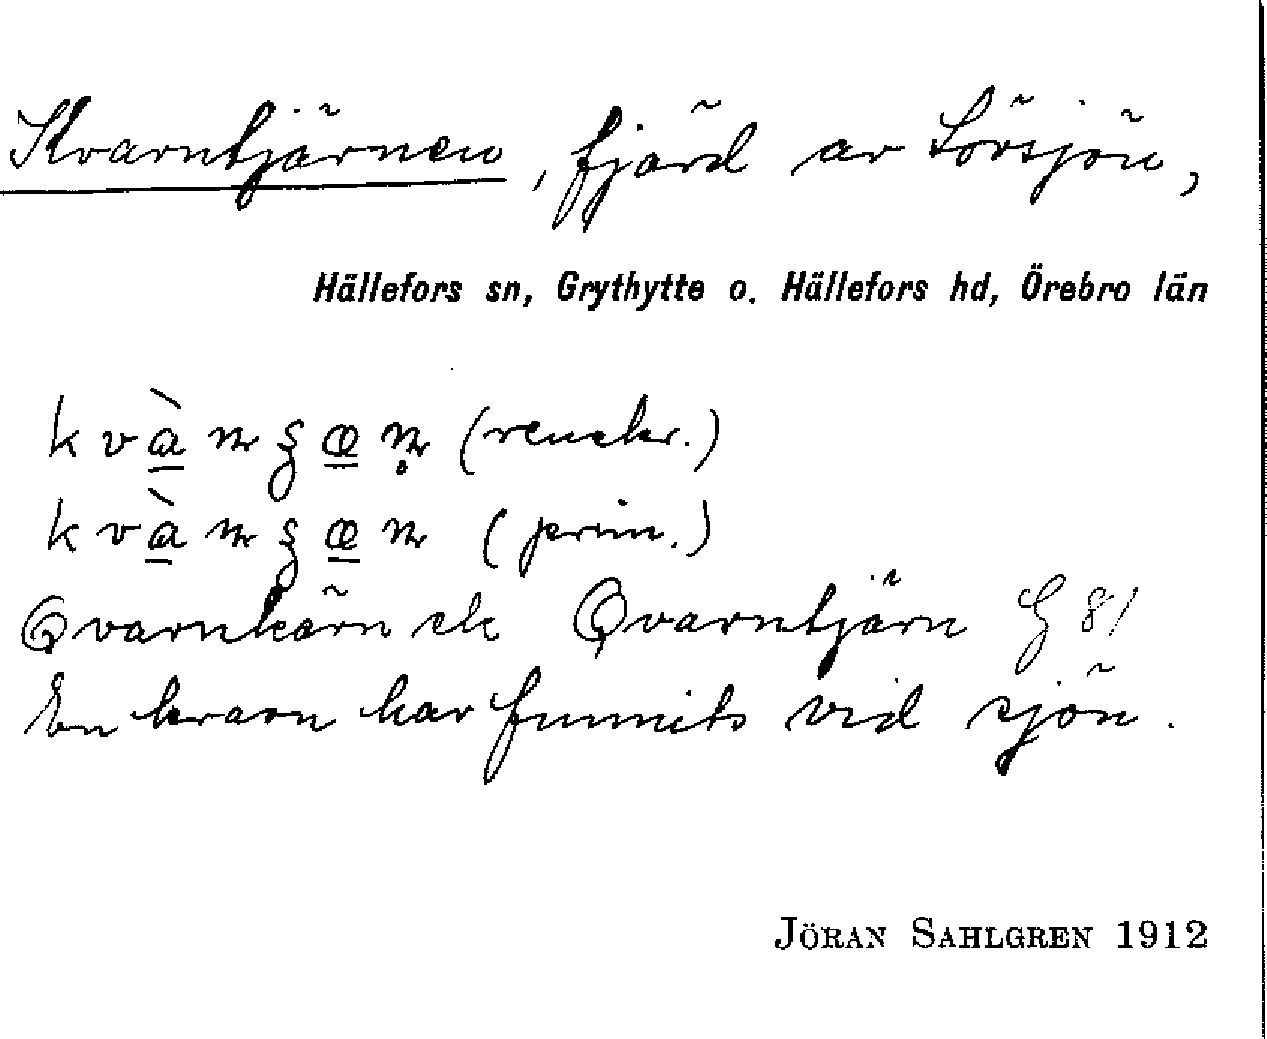 Kvarntjärnen, fjärd av Lövsjön,
Hällefors sn, Grythytte o. Hällefors hd, Örebro län
(renskr.)
(prim.)
Qvarnkärn ek Qvarntjärn G 81
En kvarn har funnits vid sjön.
JÖRAN SAHLGREN 1912